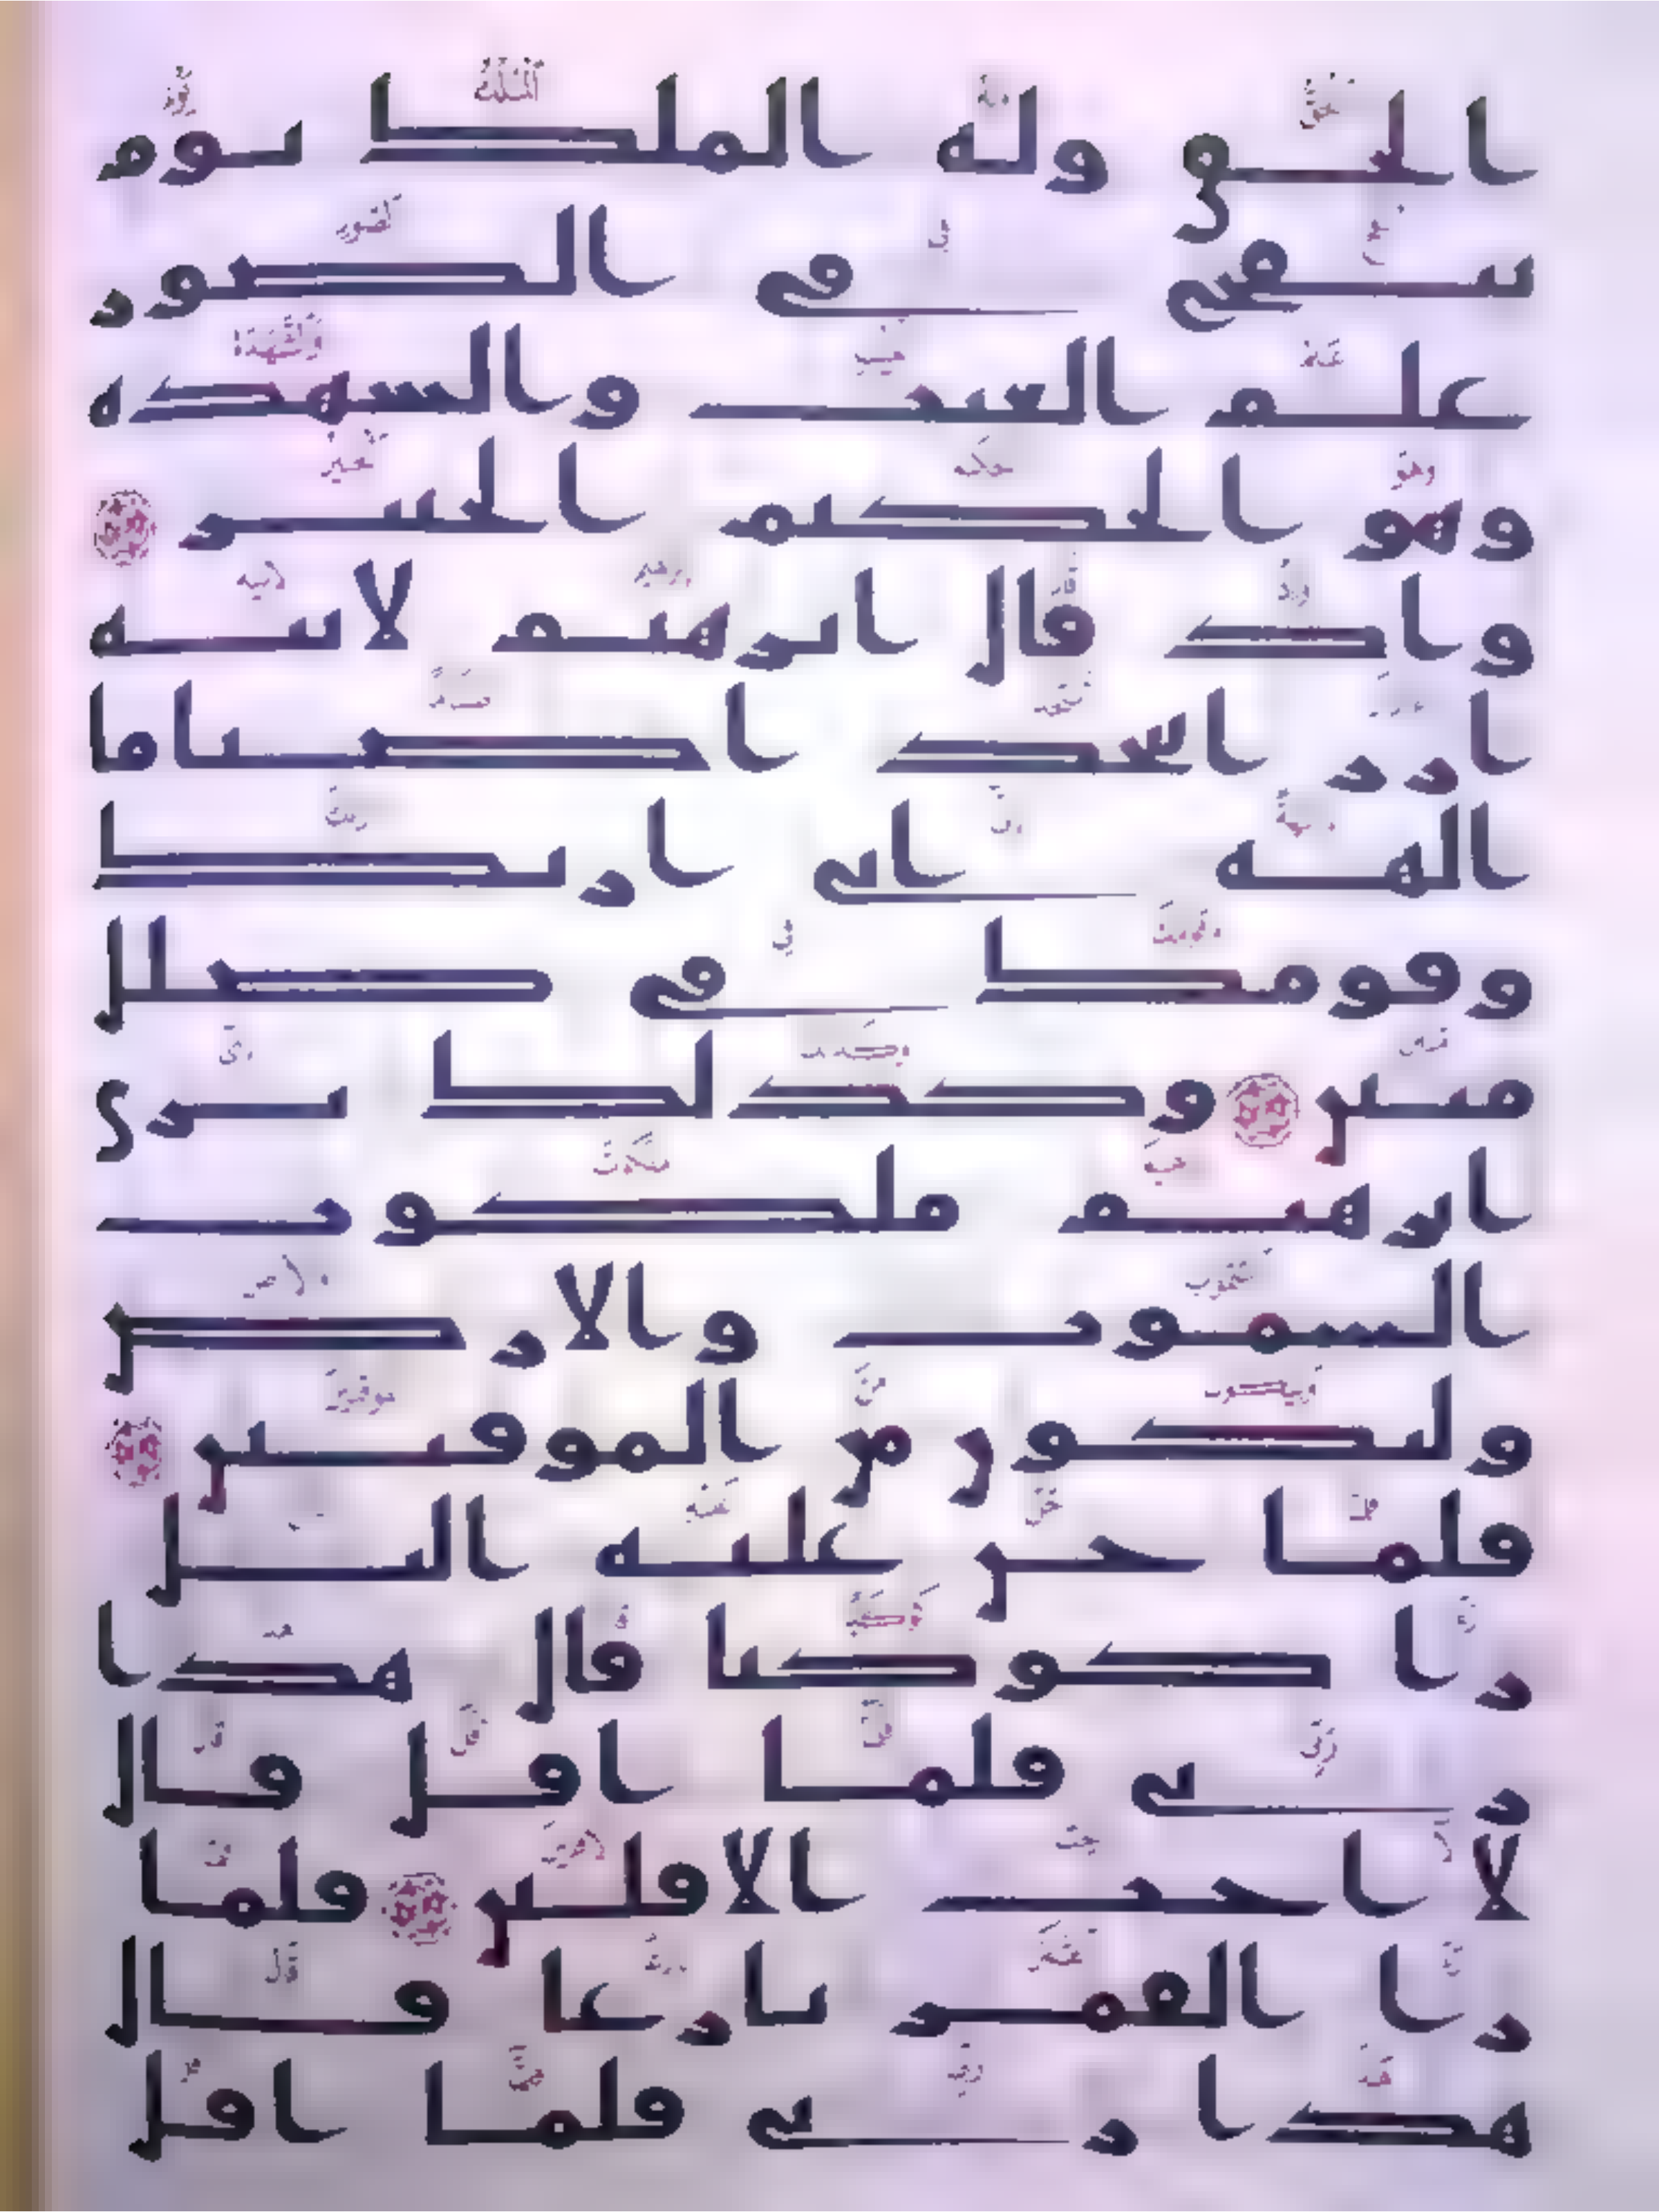 الحق وله الملك يوم
ينفخ في الصور
علم الغيب والشهدة
وهو الحكيم الخبير
واذ قال ابرهيم لابيه
ازر اتتخذ اصناما
الهة اني اريك
وقومك في ضلل
مبين وكذلك نري
ابرهيم ملكوت
السموت والارض
وليكون من الموقنين
فلما جن عليه اليل
را كوكبا قال هذا
ربي فلما افل قال
لا احب الافلين فلما
را القمر بازغا قال
هذا ربي فلما افل